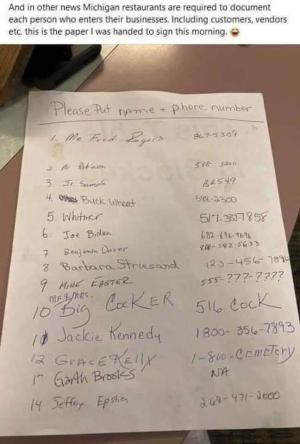 And in other news Michigan restaurants are required to document
each person who enters their businesses. Including customers, vendors
etc. this is the paper I was handed to sign this morning.
Please Put name + phone number
1. Mr Fred Rogers 867-5309
2 Robinson 588-2300
3. Jr Sample BR549
4. Buck Wheat 588-2300
5. Whitmer 517.
6. Joe Biden
7 Benjamin Dover
8 Barbara Streisand 123-456-7890
9 MIKE EASTER 555-???-????
MR & MRS.
10 Big CocKER 516 Cock
11 Jackie Kennedy 1800-356-7893
12 GRACE KELLY 1-800-CEMETERY
Garth Brooks NA
14 Jeffrey Epstien 269-471-2000